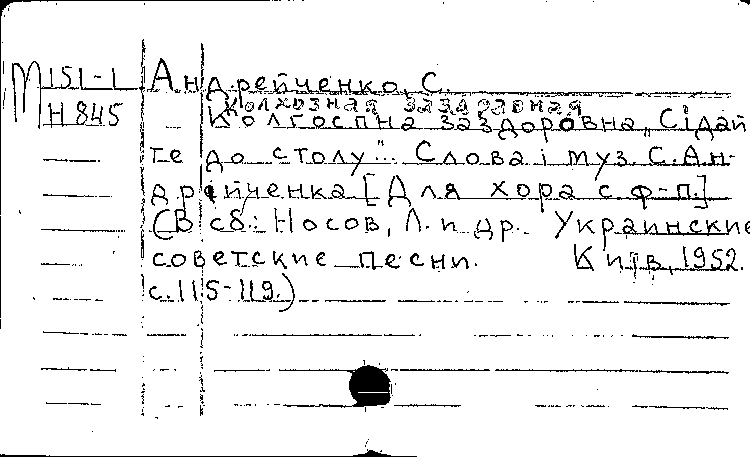 М151-1 Андрейченко, С.
Колхозная заздравная
Н 845 Колгоспна заздоровна „Сідай
те до столу". Слова і муз. С. Ан-
дрейченка [Для хора с ф-п.]
(В сб.: Носов, Л. и др. Украинские
советские песни. Київ, 1952.
с. 115-119.)